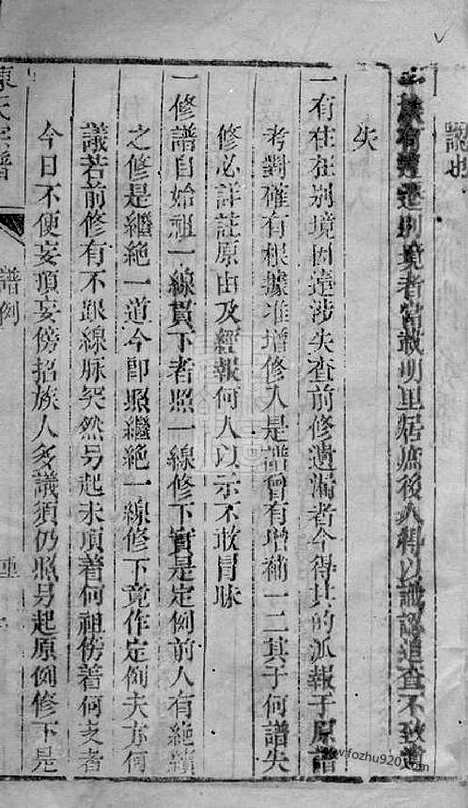 識也
一族有遷遷別境者當載明里居庶後人得以識認追查不致遺
失
一有住在别境因遠涉失查前修遺漏者今得其的派報于原譜
考對確有根據准增修入是譜曾有增補一二其于何譜失
修必詳註原由及經報何人以示不敢冒脉
一修譜自始祖一線貫下者照一線修下實是定例前人有絶續
之修是繼絶一道今即照繼絶一線修下竟作定例夫亦何
議若前修有不跟線脉突然另起未頂着何祖傍着何支者
今日不便妄頂妄傍招族人多議須仍照另起原例修下是
陳氏宗譜 譜例
www.fozhu920.com